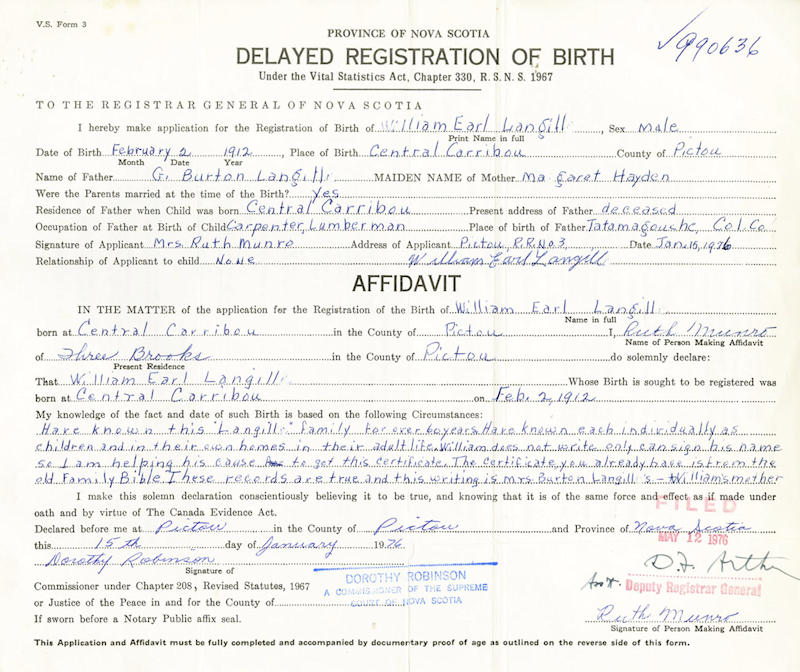 V.S. Form 3
PROVINCE OF NOVA SCOTIA
990636
DELAYED REGISTRATION OF BIRTH
Under the Vital Statistics Act, Chapter 330, R.S.N.S. 1967
TO THE REGISTRAR GENERAL OF NOVA SCOTIA
I hereby make application for the Registration of Birth of William Earl Langill, Sex Male
Print Name in full
Date of Birth February 2 1912, Place of Birth Central Carribou County of Pictou
Month Date Year
Name of Father G. Burton Langill MAIDEN NAME of Mother Margaret Hayden
Were the Parents married at the time of the Birth? Yes
Residence of Father when Child was born Central Carribou Present address of Father deceased
Occupation of Father at Birth of Child Carpenter, Lumberman Place of birth of Father Tatamagouche, Col. Co.
Signature of Applicant Mrs. Ruth Munro Address of Applicant Pictou, R.R. No 3, Date Jan. 15, 1976
Relationship of Applicant to child None William Earl Langill
AFFIDAVIT
IN THE MATTER of the application for the Registration of the Birth of William Earl Langill
Name in full
born at Central Carribou in the County of Pictou I, Ruth Munro
Name of Person Making Affidavit
of Three Brooks in the County of Pictou do solemnly declare:
Present Residence
That William Earl Langill Whose Birth is sought to be registered was
born at Central Carribou on Feb. 2, 1912
My knowledge of the fact and date of such Birth is based on the following Circumstances:
Have known this "Langill" family for over 60 years. Have known each individually as
children and in their own homes in their adult life. William does not write only can sign his name
so I am helping his cause to get this certificate. The certificate you already have is from the
old Family Bible. These records are true and this writing is Mrs Burton Langill's - William's mother
I make this solemn declaration conscientiously believing it to be true, and knowing that it is of the same force and effect as if made under
oath and by virtue of The Canada Evidence Act.
FILED
Declared before me at Pictou in the County of Pictou and Province of Nova Scotia
this 15th day of January 1976
MAY 12 1976
Dorothy Robinson
Signature of
D.F. Arthur
Commissioner under Chapter 208, Revised Statutes, 1967
DOROTHY ROBINSON
A COMMISSIONER OF THE SUPREME
COURT OF NOVA SCOTIA
Asst. Deputy Registrar General
or Justice of the Peace in and for the County of
If sworn before a Notary Public affix seal.
Ruth Munro
Signature of Person Making Affidavit
This Application and Affidavit must be fully completed and accompanied by documentary proof of age as outlined on the reverse side of this form.